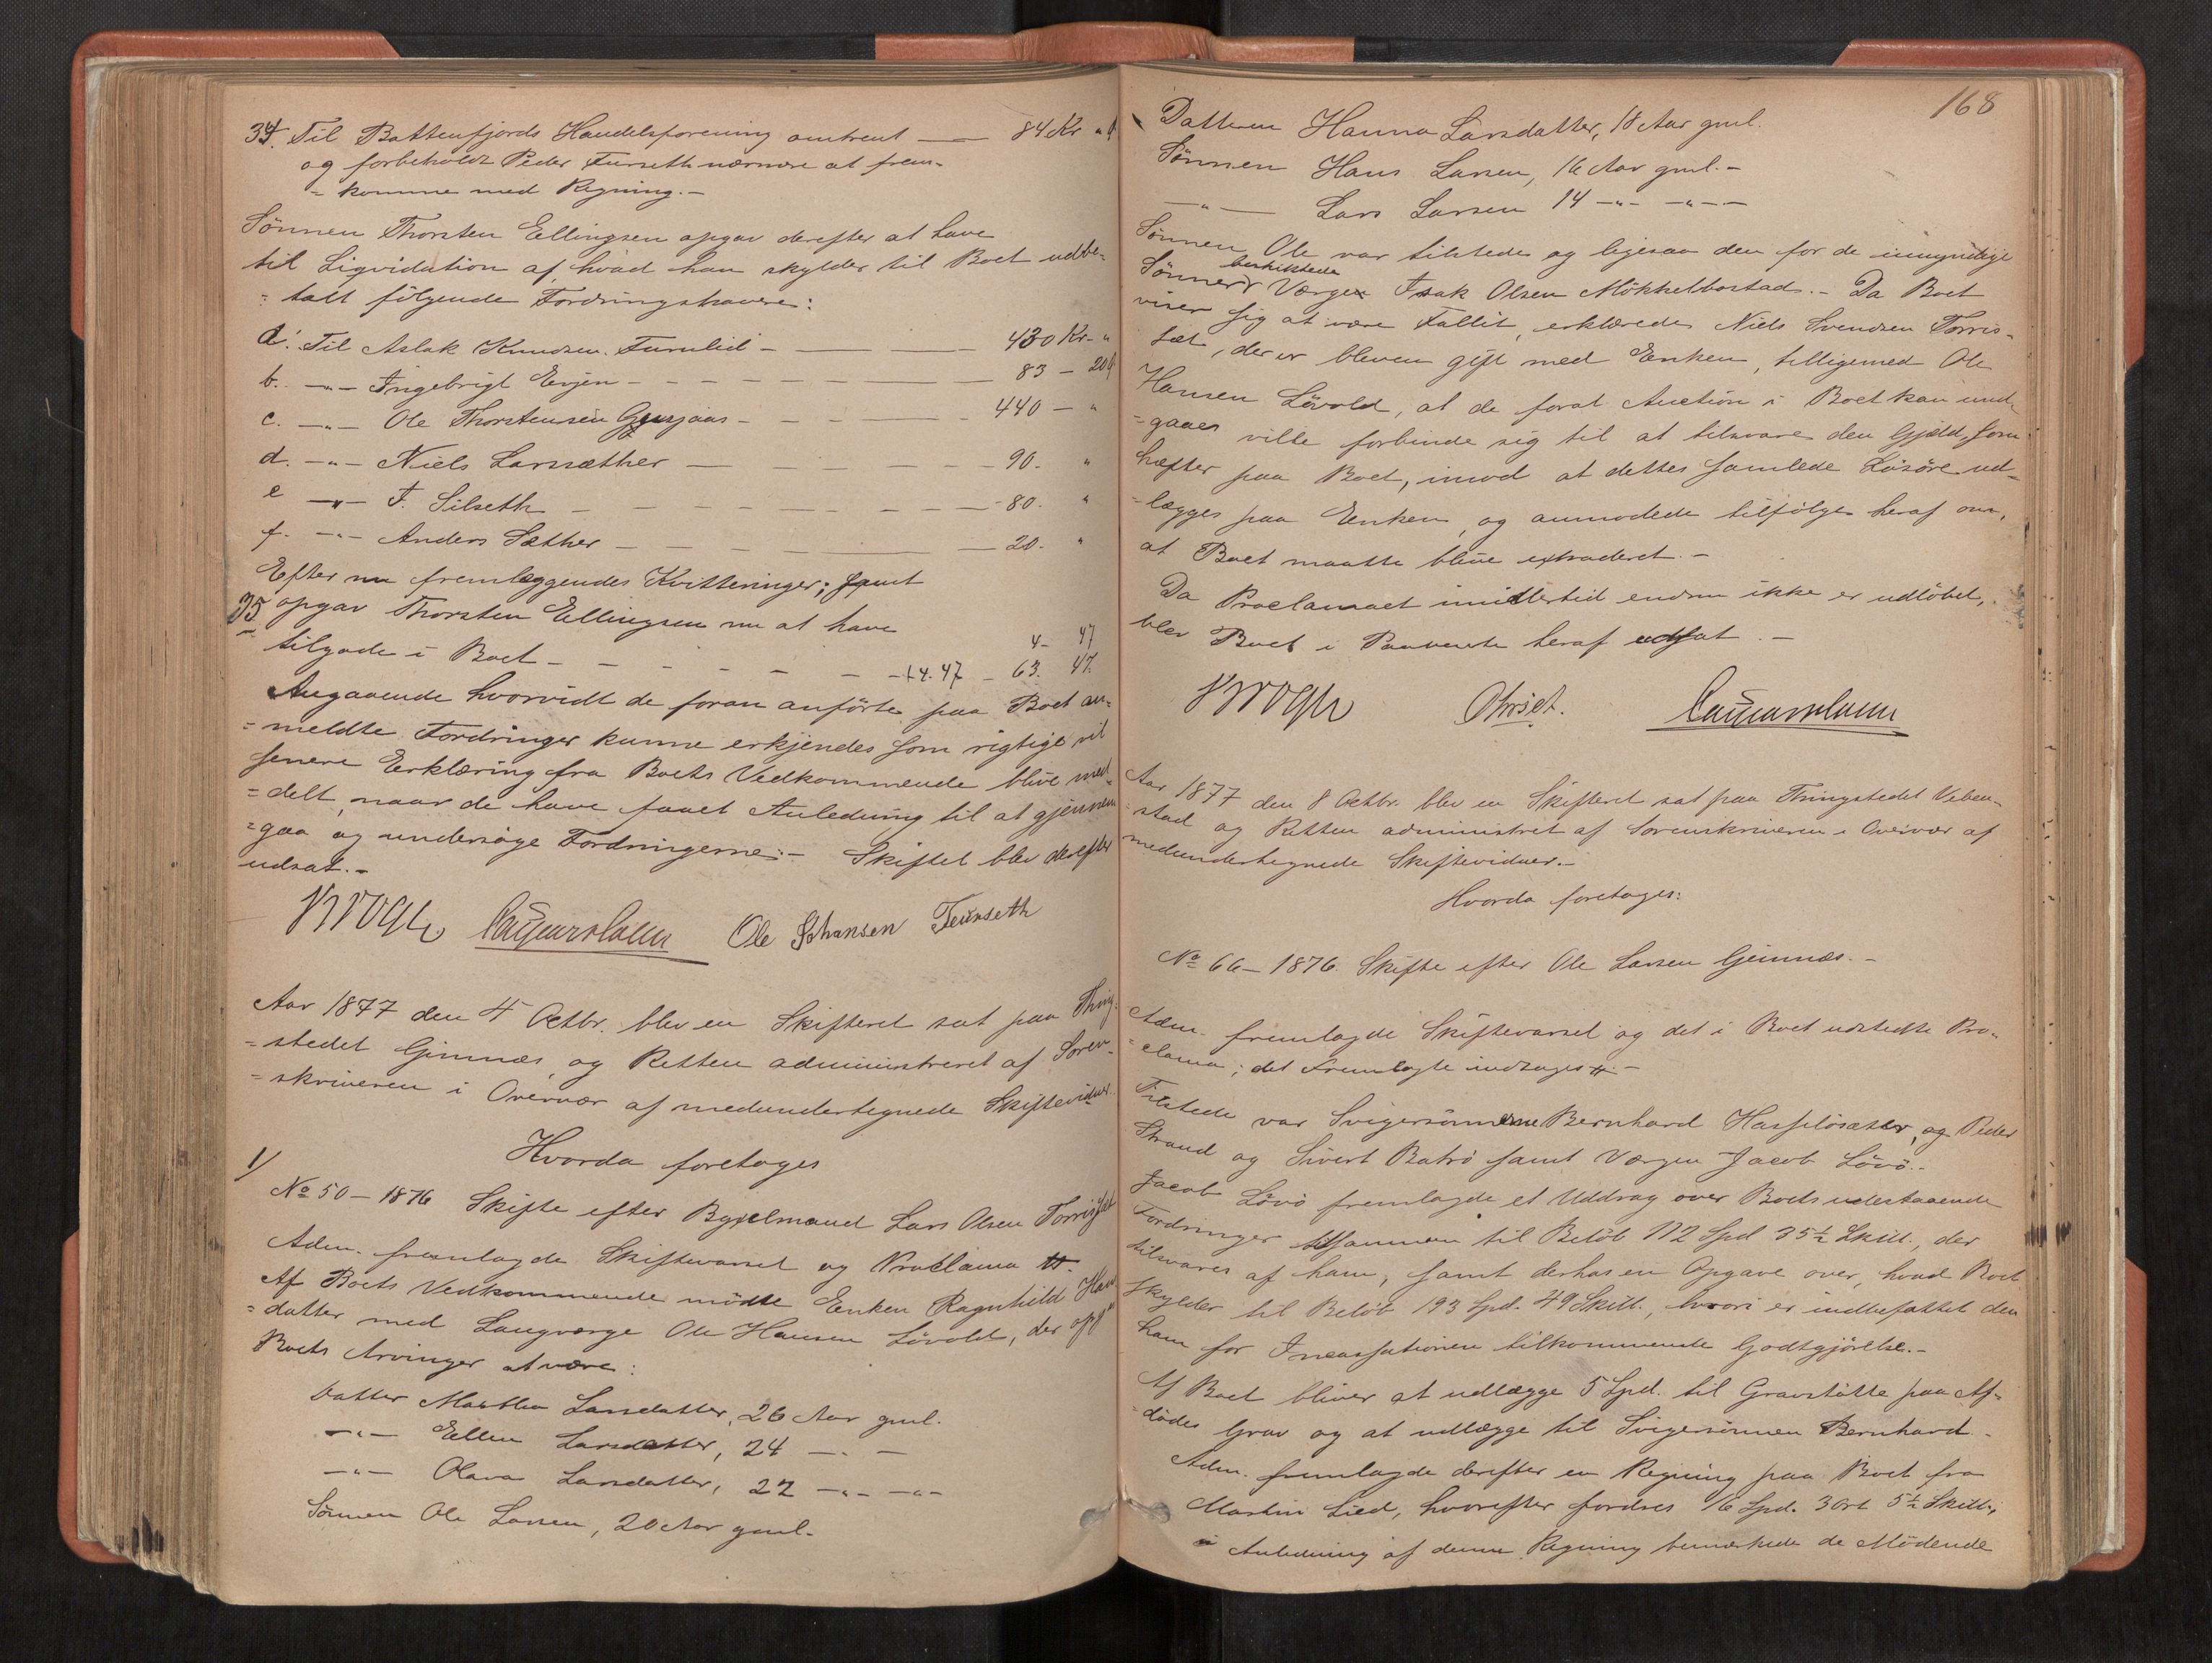 34. Til Battenfjords Handelsforening omtrent — 84 Kr „
og forbeholdt Peder Furseth nærmere at frem-
= komme med Regning. -
Sönnen Thorsten Ellingsen opgav derefter at have
til Liqvidation af hvad han skylder til Boet udbe-
= talt fölgende Fordringshavere:
a. Til Aslak Knudsen Furulid — 430 Kr - „
b. -„- Ingebrigt Eujen — 83 - 20
c. -„- Ole Thorstensen — 440 - „
d. -„- Niels Larssæther — 90. „
e -„- F. Silseth — 80. „
f. -„- Anders Sæther — 20. „
Efter nu fremlæggendes Kvitteringer; samt
35 opgav Thorsten Ellingsen nu at have
4- 47
tilgode i Boet — 14.47 - 63. 47.
Angaaende hvorvidt de foran anförte paa Boet an-
= meldte Fordringer kunne erkjendes som rigtige vil
senere Erklæring fra Boets Vedkommende blive med-
= delt, naar de have faaet Anledning til at gjennem
= gaa og undersöge Fordringerne. - Skiftet blev derefter
udsat. -
Krogh Ole Johansen Feurseth
Aar 1877 den 4 Octbr. blev en Skifteret sat paa Thing-
= stedet Gimnæs, og Retten administreret af Soren-
= skriveren i Overvær af medundertegnede Skiftevidner.
Hvorda foretoges
1/
No 50 - 1876 Skifte efter Bygselmand Lars Olsen Torriset
Adm. fremlagde Skiftevarsel og Proclama tt.
Af Boets Vedkommende mödte Enken Ragnhild Hans
= datter med Laugværge Ole Hansen Lövold, der opgav
Boets Arvinger at være:
Datter Marthe Larsdatter, 26 Aar gml.
-„- Ellen Larsdatter, 24 -„-
-„- Olava Larsdatter, 22 -„- -„-
Sönnen Ole Larsen, 20 Aar gml.
168
Datteren Hanna Larsdatter, 18 Aar gml.
Sönnen Hans Larsen, 16 Aar gml. -
-„- Lars Larsen 14 -„- -„-
Sönnen Ole var tilstede og ligesaa den for de umyndige
beskikkede
Sönner Værge Isak Olsen Mökkelbostad. - Da Boet
viser sig at være Fallit, erklærede Niels Svendsen Torris-
sæt, der er bleven gift med Enken, tilligemed Ole
Hansen Lövold, at de forat Auction i Boet kan und-
= gaaes ville forbinde sig til at tilsvare den Gjæld, som
hæfter paa Boet, imod at dettes samlede Lösöre ud-
= lægges paa Enken, og anmodede tilfölge heraf om,
at Boet maatte blive extraderet. -
Da Proclamaet imidlertid endnu ikke er udlöbet,
blev Boet i Paavente heraf udsat. -
Krogh
Aar 1877 den 8 Octbr. blev en Skifteret sat paa Thingstedet Veben-
= stad og Retten administret af Sorenskriveren i Overvær af
medundertegnede Skiftevidner. -
Hvorda foretoges:
No 66 - 1876. Skifte efter Ole Larsen Gimnæs. -
Adm. fremlagde Skiftevarsel og det i Boet udstedte Pro-
= clama; det Fremlagte indtages tt. -
Tilstede var Svigersönnerne Bernhard Hasselösæter, og Peder
Strand og Sivert Batrö samt Værgen Jacob Lövö. -
Jacob Lövö fremlagde et Uddrag over Boets udestaaende
Fordringer tilsammen til Belöb 112 Spd 35½ Skill., der
tilsvares af ham, samt derhos en Opgave over, hvad Boet
skylder til Belöb 193 Spd. 49 Skill., hvori er indbefattet den
ham for Incassationen tilkommende Godtgjörelse. -
Af Boet bliver at udlægge 5 Spd. til Gravstötte paa Af-
= dödes Grav og at udlægge til Svigersönnen Bernhard -
Adm. fremlagde derefter en Regning paa Boet fra
Martin Lied, hvorefter fordres 16 Spd. 3 Ort 5½ Skill.,
i Anledning af denne Regning bemærkede de Mödende